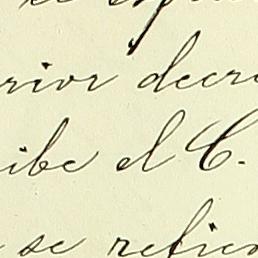 rior decre
ibe el C.
se refier